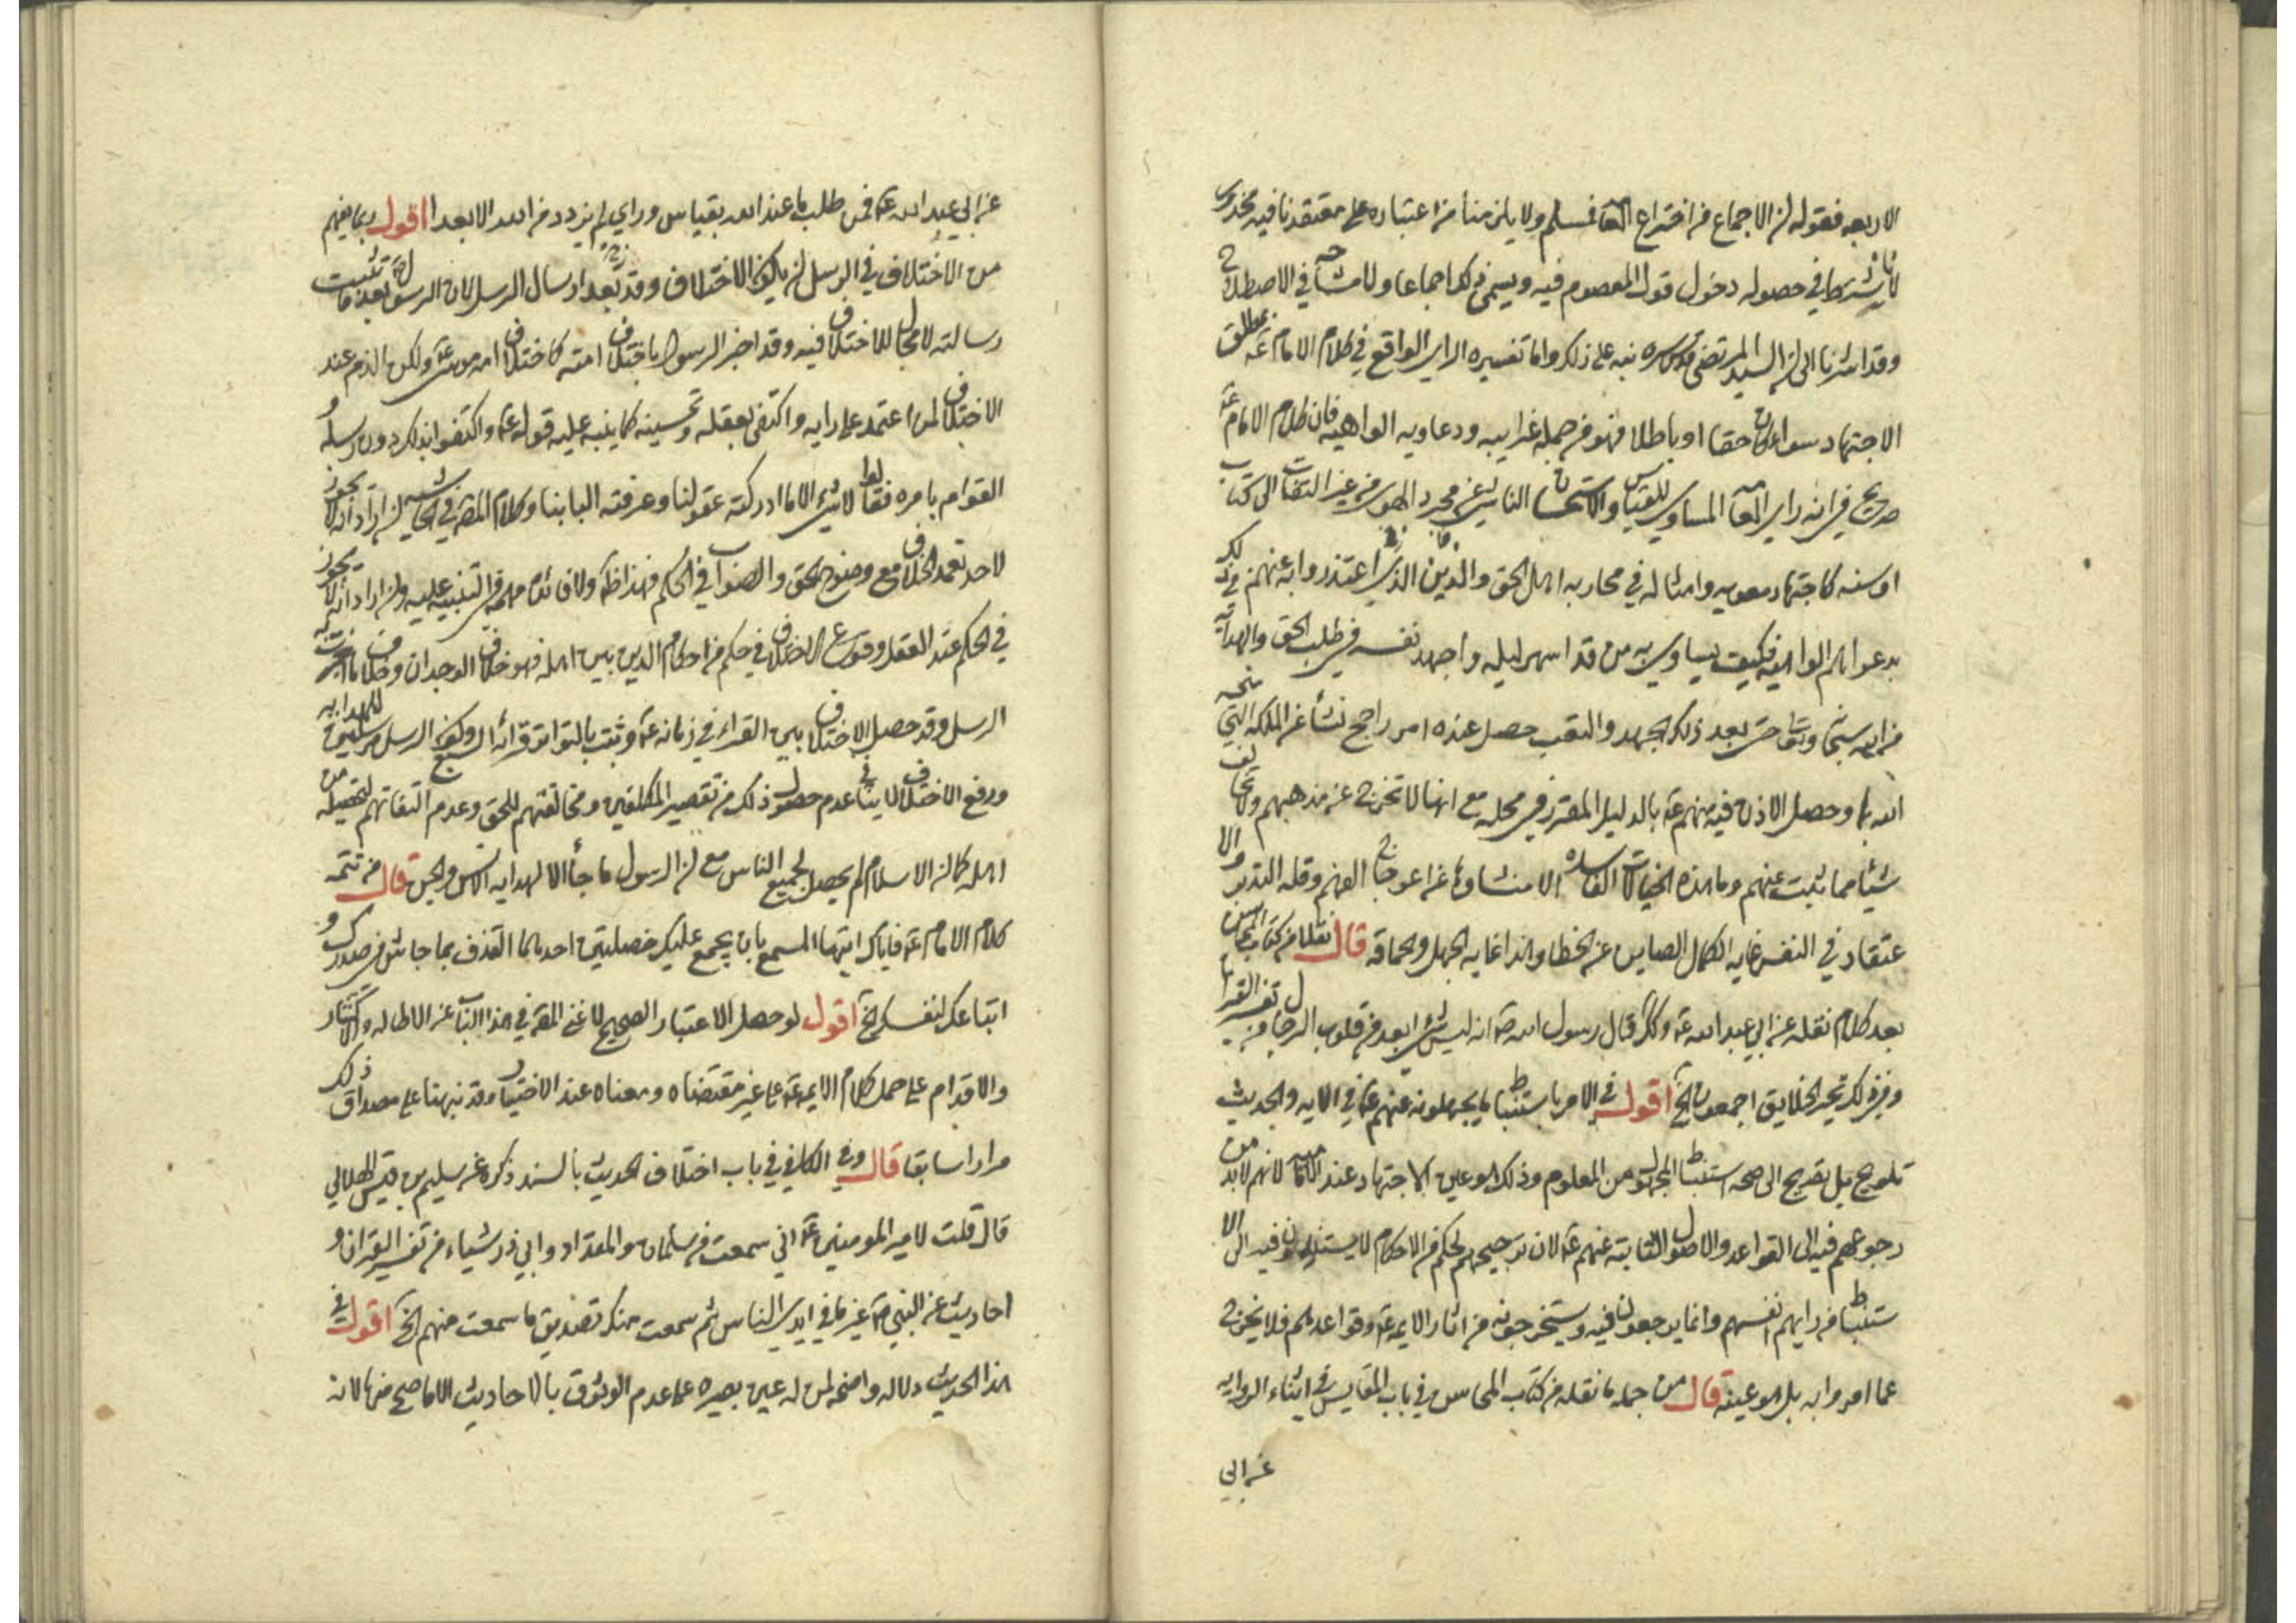 الاربعه فقوله ان الاجماع من اختراع العامة فمسلم ولا يلزمنا من اعتباره على معتقدنا فيه محذور
لانا نشترط في حصوله دخول قول المعصوم فيه ويسمى ذلك اجماعا ولا مشاحة في الاصطلاح
وقد اشرنا الى ان السيد المرتضى قدس سره نبه على ذلك واما تفسيره الراي الواقع في كلام الامام عه بمطلق
الاجتهاد سواء كان حقا او باطلا فهو من جملة غرايبه ودعاويه الواهيه فان كلام الامام عه
صريح في انه راي العامة المساوي للقياس والاستحسان الناشي عن مجرد الهوى من غير التفات الى كتاب
او سنه كاجتهاد معويه وامثاله في محاربه اهل الحق والذين الذي اعتذروا به عنهم في ذلك
بدعواهم الواهيه فكيف يساوي به من قد اسهر ليله واجهد نفسه في طلب الحق والهداية
من الله سبحانه وتعا حتى بعد ذلك الجهد والتعب حصل عنده امر راجح نشأ عن الملكه التي منحه
الله بها وحصل الاذن فيه منهم عه بالدليل المقرر في محله مع انها لا تخرج عن مذهبهم ولا تخالف
شيئا مما ثبت عنهم وما هذه الخيالات الفاسده الا منشاوها عن اعوجاج الفهم وقله التدبر والا
عتقاد في النفس غايه الكمال الصاين عن الخطا وهذا غايه الجهل والحماقه قال نقلا من كتاب المحاسن
بعد كلام نقله عن ابي عبد الله عه وكذا قال رسول الله صه انه ليس شي ابعد من قلوب الرجال من تفسير القران
وفي ذلك تحير الخلايق اجمعون الخ اقول في الامر باستنباط ما يجهلونه عنهم عه في الايه والحديث
تلويح بل تصريح الى صحه استنباط المجهول من المعلوم وذلك هو عين الاجتهاد عند الامامية لانهم لا بد من
رجوعهم فيه الى القواعد والاصول الثابته عنهم عه لان ترجيحهم لحكم من الاحكام لا يستندون فيه الى الا
ستنباط من رايهم انفسهم وانما يرجعون فيه ويستخرجونه من اثار الايمه عه وقواعدهم فلا يخرج
عما امروا به بل هو عينه قال من جمله ما نقله من كتاب المحاسن في باب المقاييس في اثناء الروايه
عن ابي
عن ابي عبد الله عه فمن طلب ما عند الله بقياس وراي لم يزدد من الله الا بعدا اقول ربما يفهم
من الاختلاف في الرسل ان يكون الاختلاف وقد بعد ارسال الرسل لان الرسول صه بعد ما ثبتت
رسالته لا مجال للاختلاف فيه وقد اخبر الرسول باختلاف امته كاختلاف امه موسى عه ولكن الذم عند
الاختلاف لمن اعتمد على رايه واكتفى بعقله وتحسينه كما ينبه عليه قوله عه واكتفوا بذلك دون رسله و
القوام بامره فقالوا لا شي الا ما ادركته عقولنا وعرفته البابنا وكلام المصنف في الحاشيه ان اراد انه لا يجوز
لاحد تعمد الخلاف مع وضوح الحق والصواب في الحكم فهذا ظاهر ولا فائده مهمه في التنبيه عليه وان اراد انه لا يجوز
في الحكم عند العقل وقوع الاختلاف في حكم من احكام الدين بين اهله فهو خلاف الوجدان وخلاف ما اخبرت به
الرسل وقد حصل الاختلاف بين القراء في زمانه عه وثبت بالتواتر قرائه السبع وكون الرسل مرسلين للهدايه
ورفع الاختلاف لا ينافي عدم حصول ذلك من تقصير المكلفين ومخالفتهم للحق وعدم التفاتهم لتحصيله من
اهله كما ان الاسلام لم يحصل لجميع الناس مع ان الرسول ما جاء الا لهدايه الانس والجن قال من تتمه
كلام الامام عه فاياك ايتها المسمع بان يجمع عليك خصلتين احدهما القذف بما جاش في صدرك و
اتباعك لنفسك الخ اقول لو حصل الاعتبار الصحيح لاغنى المصنف في هذا الباب عن الاطاله والاكثار
والاقدام على حمل كلام الايمه عه على غير مقتضاه ومعناه عند الاختيار وقد نبهنا على مصداق ذلك
مرارا سابقا قال وفي الكافي في باب اختلاف الحديث بالسند ذكره عن سليم بن قيس الهلالي
قال قلت لامير المومنين عه اني سمعت من سلمان والمقداد وابي ذر شياء من تفسير القران و
احاديث عن النبي صه غير ما في ايدي الناس ثم سمعت منك تصديق ما سمعت منهم الخ اقول في
هذا الحديث دلاله واضحه لمن له عين بصيره على عدم الوثوق بالاحاديث الا ما صح منها لانه